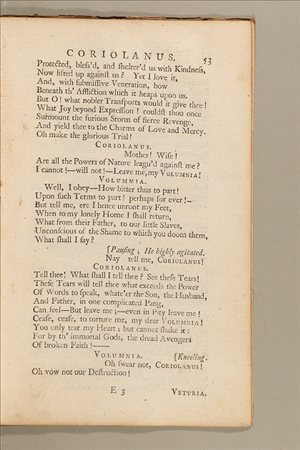 CORIOLANUS. 53
Protected, bless'd, and shelter'd us with Kindness,
Now lifted up against us? Yet I love it,
And, with submissive Veneration, bow
Beneath th' Affliction which it heaps upon us.
But O! what nobler Transports would it give thee!
What Joy beyond Expression! couldst thou once
Surmount the furious Storm of fierce Revenge,
And yield thee to the Charms of Love and Mercy.
Oh make the glorious Trial!
CORIOLANUS.
Mother! Wife!
Are all the Powers of Nature leagu'd against me?
I cannot!—will not!—Leave me, my VOLUMNIA!
VOLUMNIA.
Well, I obey—How bitter thus to part!
Upon such Terms to part! perhaps for ever!—
But tell me, ere I hence unroot my Feet,
When to my lonely Home I shall return,
What from their Father, to our little Slaves,
Unconscious of the Shame to which you doom them,
What shall I say?
[Pausing; He highly agitated.
Nay tell me, CORIOLANUS!
CORIOLANUS.
Tell thee! What shall I tell thee? See these Tears!
These Tears will tell thee what exceeds the Power
Of Words to speak, whate'er the Son, the Husband,
And Father, in one complicated Pang,
Can feel—But leave me;—even in Pity leave me!
Cease, cease, to torture me, my dear VOLUMNIA!
You only tear my Heart; but cannot shake it:
For by th' immortal Gods, the dread Avengers
Of broken Faith!——
VOLUMNIA. [Kneeling.
Oh swear not, CORIOLANUS!
Oh vow not our Destruction!
E 3 VETURIA.